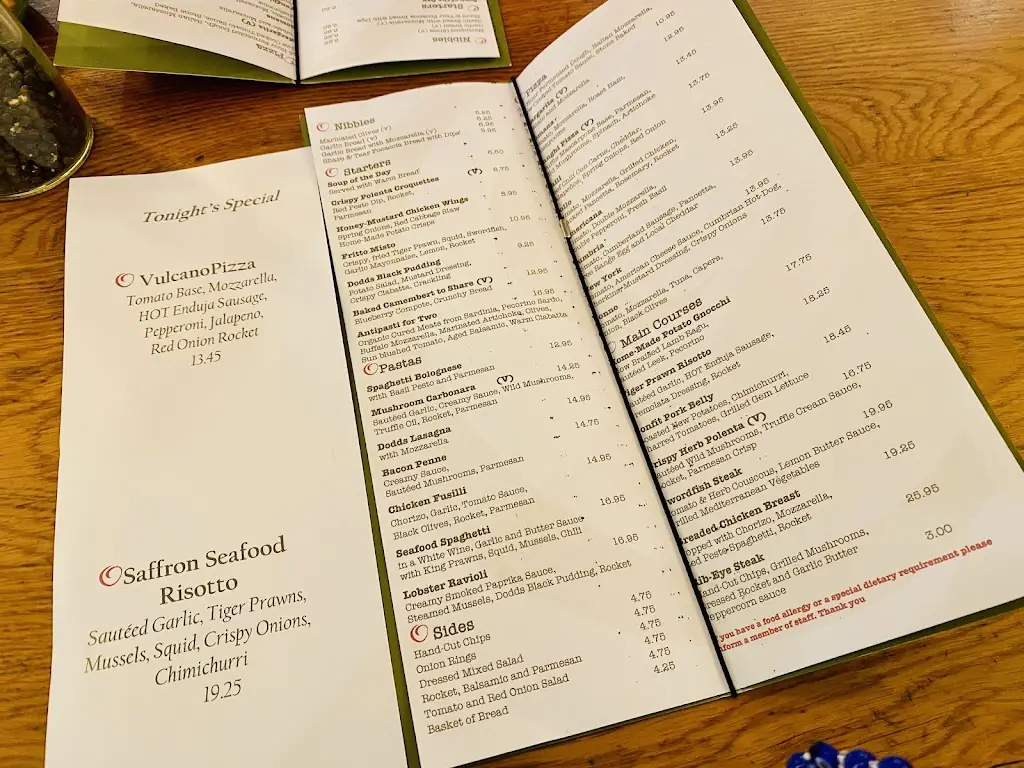 Tonight's Special
VulcanoPizza
Tomato Base, Mozzarella,
HOT Enduja Sausage,
Pepperoni, Jalapeno,
Red Onion Rocket
13.45
Saffron Seafood
Risotto
Sautéed Garlic, Tiger Prawns,
Mussels, Squid, Crispy Onions,
Chimichurri
19.25
Nibbles
Marinated Olives (V) 5.25
Garlic Bread (v) 5.25
Garlic Bread with Mozzarella (v) 6.95
Share & Tear Focaccia Bread with Dips 9.95
Starters
Soup of the Day 6.50
Served with Warm Bread
Crispy Polenta Croquettes (V) 8.75
Red Pesto Dip, Rocket,
Parmesan
Honey-Mustard Chicken Wings 8.95
Spring Onions, Red Cabbage Slaw
Home-Made Potato Crisps
Fritto Misto 10.95
Crispy, fried Tiger Prawn, Squid, Swordfish,
Garlic Mayonnaise, Lemon, Rocket
Dodds Black Pudding 9.25
Potato Salad, Mustard Dressing,
Crispy Ciabatta, Crackling
Baked Camembert to Share (V) 12.95
Blueberry Compote, Crunchy Bread
Antipasti for Two 16.95
Organic Cured Meats from Sardinia, Pecorino Sardo,
Buffalo Mozzarella, Marinated Artichoke, Olives,
Sun blushed Tomato, Aged Balsamic, Warm Ciabatta
Pastas
Spaghetti Bolognese 12.95
with Basil Pesto and Parmesan
Mushroom Carbonara (V) 14.25
Sautéed Garlic, Creamy Sauce, Wild Mushrooms,
Truffle Oil, Rocket, Parmesan
Dodds Lasagna 14.95
with Mozzarella
Bacon Penne 14.75
Creamy Sauce,
Sautéed Mushrooms, Parmesan
Chicken Fusilli 14.95
Chorizo, Garlic, Tomato Sauce,
Black Olives, Rocket, Parmesan
Seafood Spaghetti 16.95
in a White Wine, Garlic and Butter Sauce
with King Prawns, Squid, Mussels, Chili
Lobster Ravioli 16.95
Creamy Smoked Paprika Sauce,
Steamed Mussels, Dodds Black Pudding, Rocket
Sides
Hand-Cut Chips 4.75
Onion Rings 4.75
Dressed Mixed Salad 4.75
Rocket, Balsamic and Parmesan 4.75
Tomato and Red Onion Salad 4.75
Basket of Bread 4.25
Pizza
Fermented Dough, Italian Mozzarella,
Cooked Tomato Sauce, Stone Baked
(V) 10.95
and Mozzarella
12.95
Mozzarella, Roast Ham,
(V) 13.45
Mascarpone Base, Parmesan,
Mushrooms, Spinach, Artichoke
13.75
Chili Con Carne, Cheddar,
Spring Onions, Red Onion
13.95
Mozzarella, Grilled Chicken
Pancetta, Rosemary, Rocket
13.25
Double Mozzarella,
Pepperoni, Fresh Basil
13.95
Cumberland Sausage, Pancetta,
Range Egg and Local Cheddar
York 13.95
American Cheese Sauce, Cumbrian Hot-Dog,
Mustard Dressing, Crispy Onions
13.75
Mozzarella, Tuna, Capers,
Black Olives
Main Courses
Home-Made Potato Gnocchi 17.75
Braised Lamb Ragu,
Leek, Pecorino
Prawn Risotto 18.25
Garlic, HOT Enduja Sausage,
Dressing, Rocket
Pork Belly 18.45
New Potatoes, Chimichurri,
Tomatoes, Grilled Gem Lettuce
Herb Polenta (V) 16.75
Wild Mushrooms, Truffle Cream Sauce,
Parmesan Crisp
Steak 19.95
& Herb Couscous, Lemon Butter Sauce,
Mediterranean Vegetables
Chicken Breast 19.25
with Chorizo, Mozzarella,
Pesto-Spaghetti, Rocket
Steak 25.95
Chips, Grilled Mushrooms,
Rocket and Garlic Butter
sauce 3.00
you have a food allergy or a special dietary requirement please
a member of staff. Thank you